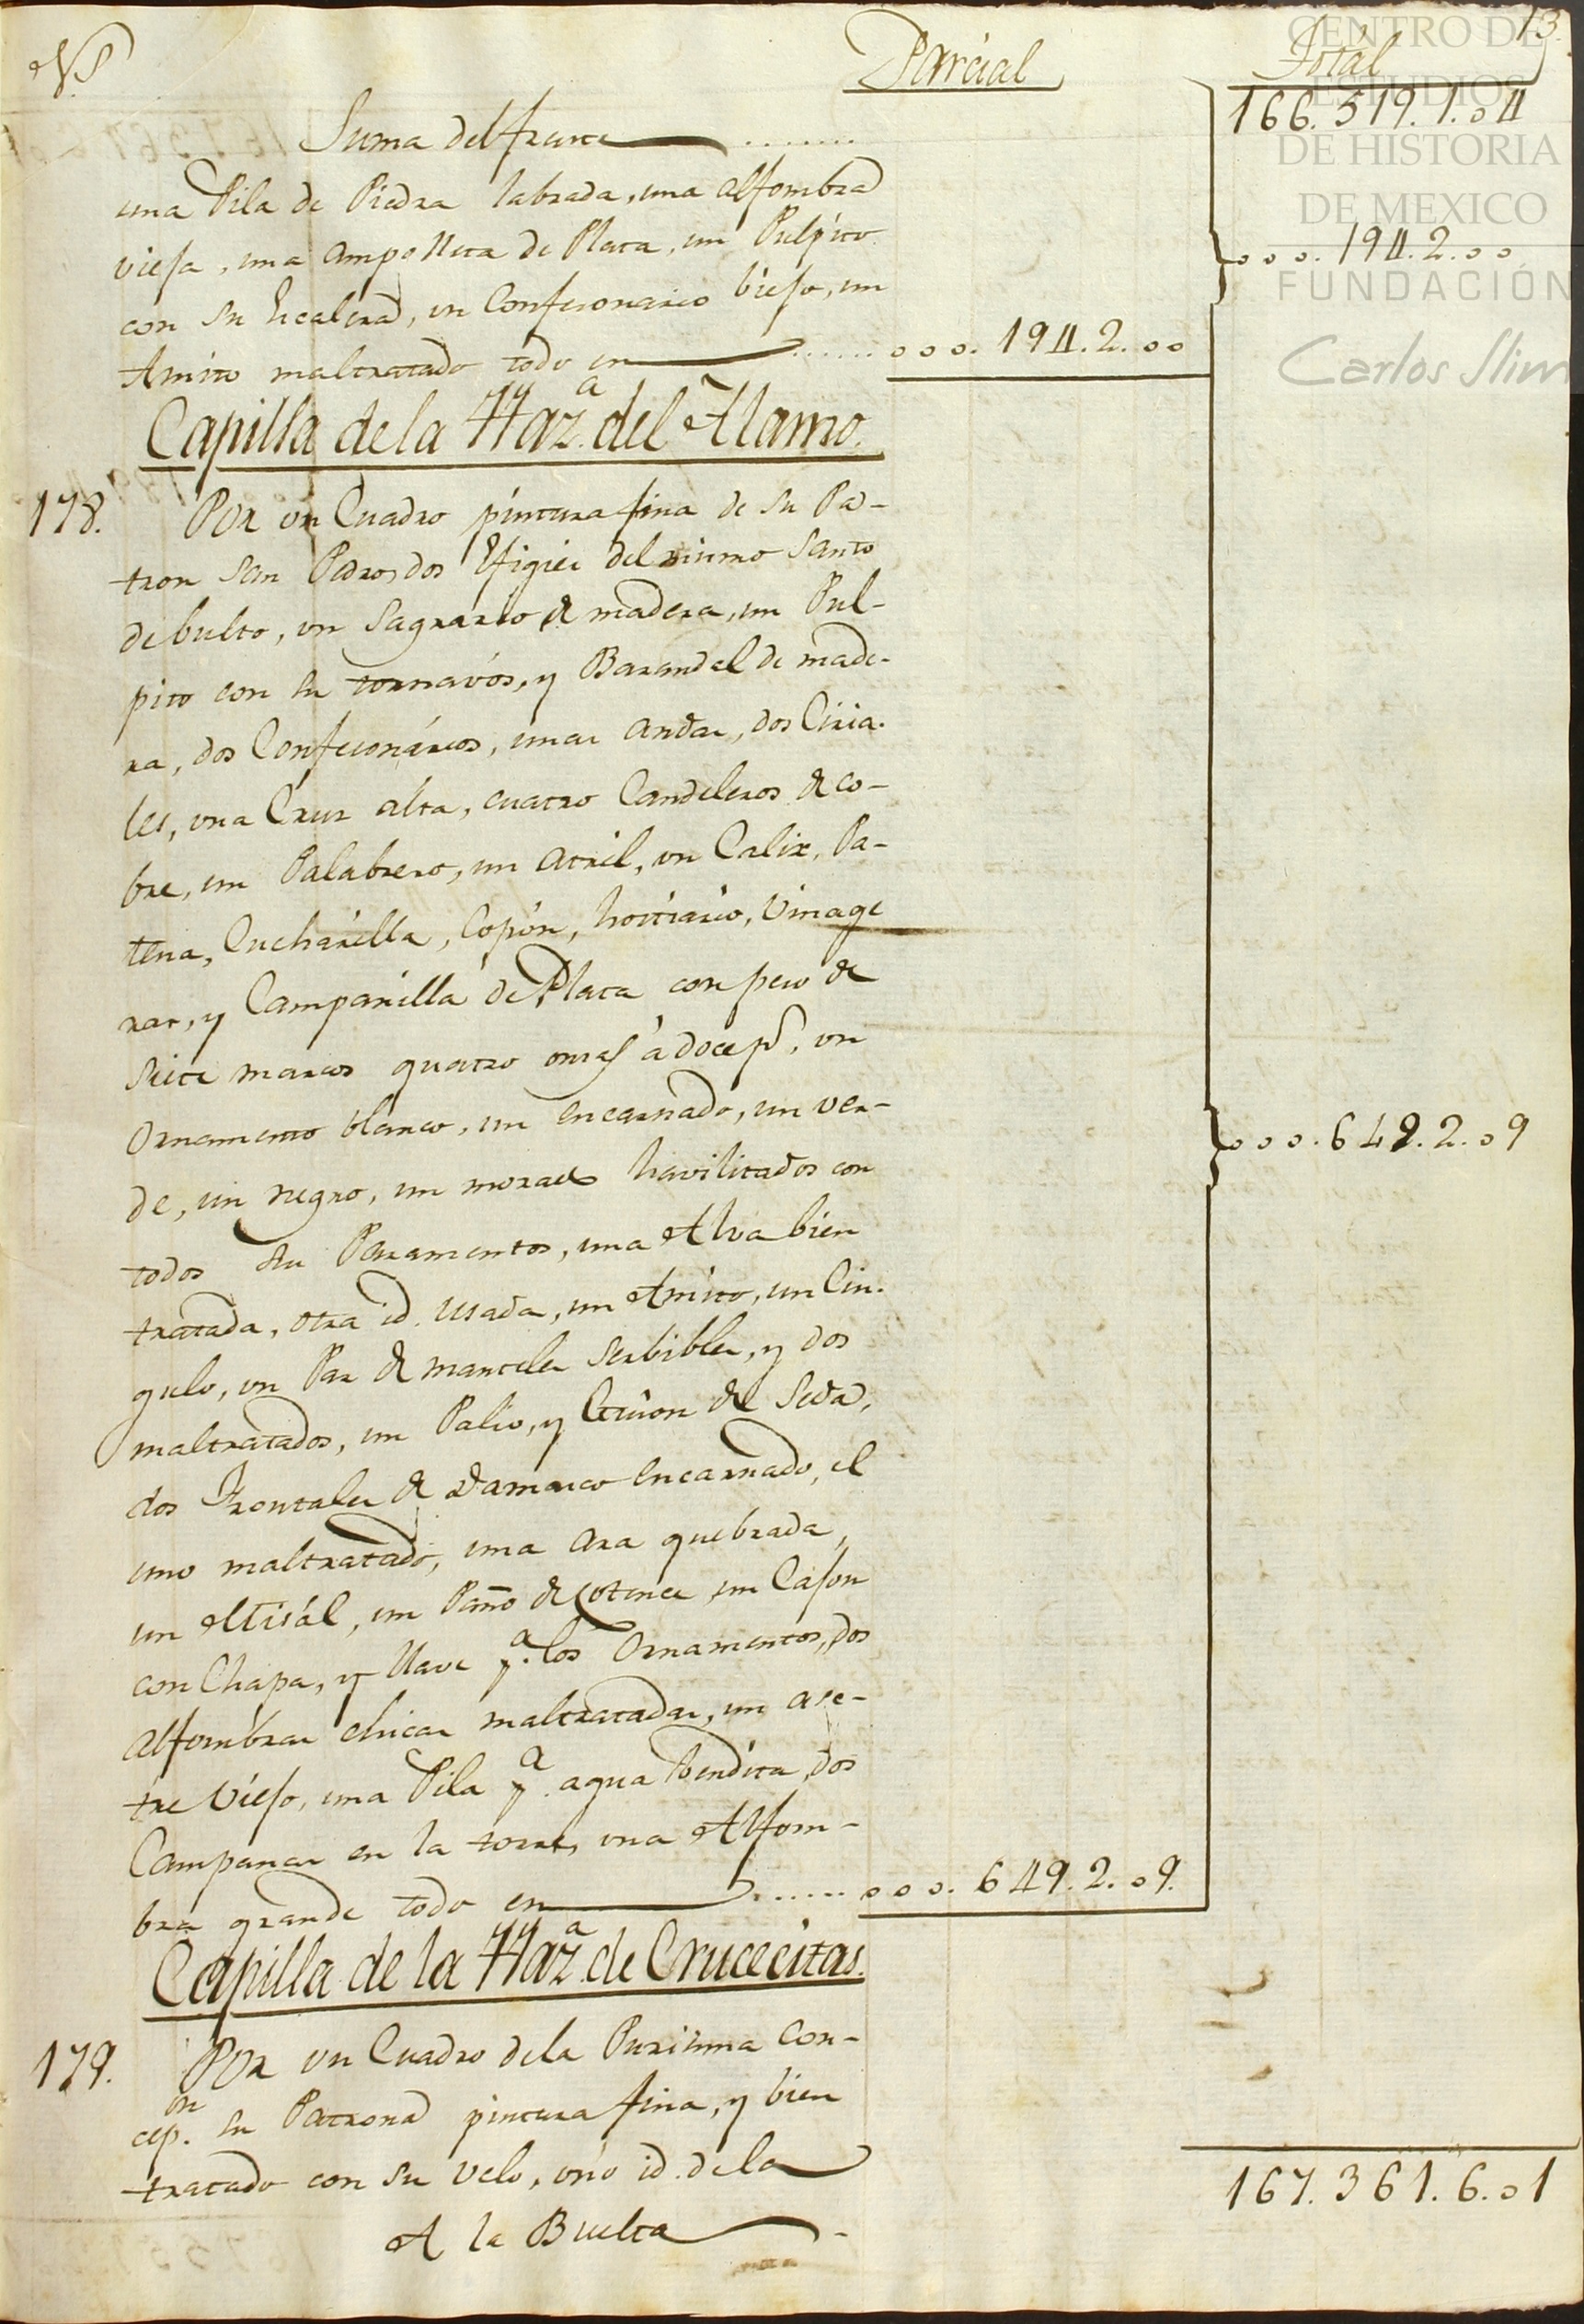 NS
Parcial
Total
13.
Suma del frente ........ 166.519.1.04
una Pila de Piedra labrada, una alfombra
viefa, una ampolleta de Plata, un Pulpito
con su Escalera, un Confesonario biefo, un
Amito maltratado todo en ...... 000.194.2.00 000.194.2.00
Capilla de la Haz.ª del Alamo.
178. Por un Cuadro pintura fina de su Pa-
tron San Pedro, dos Efigies del mismo Santo
de bulto, un Sagrario de madera, un Pul-
pito con su tornavós, y Barandal de made-
ra, dos Confesonários, unas andas, dos Ciria-
les, una Cruz alta, cuatro Candeleros de co-
bre, un Palabrero, un atril, un Calix, Pa-
tena, Cucharilla, Copón, hostiario, Vinage
ras, y Campanilla de Plata con peso de
siete marcos quatro onzas à doce p.s, un
Ornamento blanco, un encarnado, un ver-
de, un negro, un morado havilitados con
todos sus Paramentos, una Alva bien
tratada, otra id. usada, un Amito, un Cin-
gulo, un Par de manteles serbibles, y dos
maltratados, un Palio, y Guion de Seda,
dos Frontales de Damasco encarnado, el
uno maltratado, una ara quebrada,
un Misál, un Paño de Cotence, un Cafon
con Chapa, y llave p.ª los Ornamentos, dos
alfombras chicas maltratadas, un ase-
tre Viefo, una Pila p.ª agua bendita, dos
Campanas en la torre, una Alfom-
bra grande todo en ...... 000.649.2.09. 000.649.2.09
Capilla de la Haz.ª de Crucecitas.
179. Por un Cuadro de la Purisima Con-
cep.on su Patrona pintura fina, y bien
tratado con su velo, uno id. de la
A la Buelta 167.361.6.01
CENTRO DE
ESTUDIOS
DE HISTORIA
DE MEXICO
FUNDACIÓN
Carlos Slim